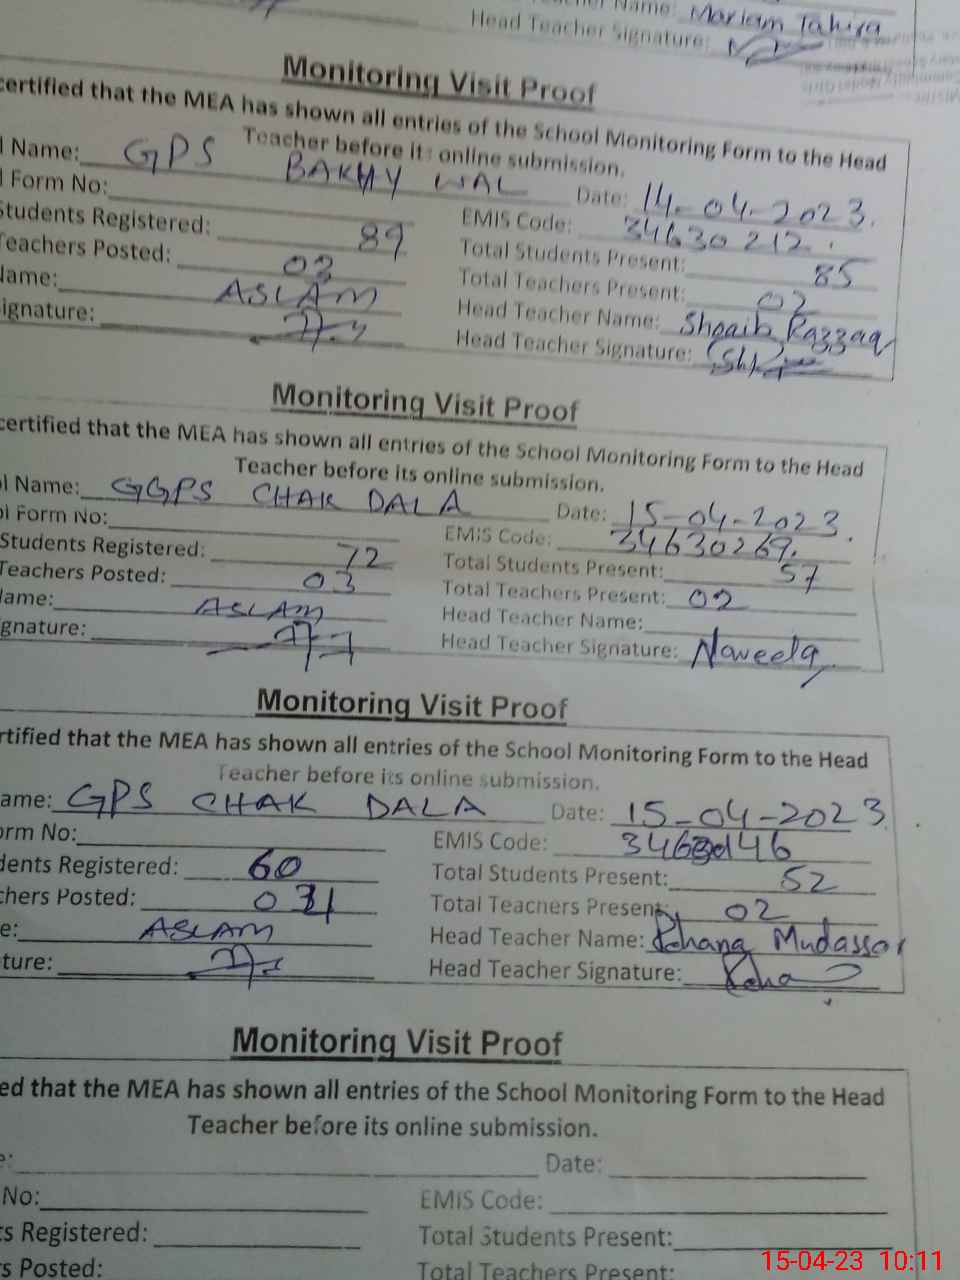 Name: Mariam Tahira
Head Teacher Signature:
Monitoring Visit Proof
certified that the MEA has shown all entries of the School Monitoring Form to the Head
Teacher before its online submission.
l Name: GPS BAKHY WAL Date: 14-04-2023.
l Form No: EMIS Code: 34630212.
Students Registered: 89 Total Students Present: 85
Teachers Posted: 03 Total Teachers Present: 02
Name: ASLAM Head Teacher Name: Shoaib Razzaq
ignature: Head Teacher Signature:
Monitoring Visit Proof
certified that the MEA has shown all entries of the School Monitoring Form to the Head
Teacher before its online submission.
l Name: GGPS CHAK DALA Date: 15-04-2023.
ol Form No: EMIS Code: 34630269.
Students Registered: 72 Total Students Present: 57
Teachers Posted: 03 Total Teachers Present: 02
Name: ASLAM Head Teacher Name:
gnature: Head Teacher Signature: Naweela
Monitoring Visit Proof
rtified that the MEA has shown all entries of the School Monitoring Form to the Head
Teacher before its online submission.
ame: GPS CHAK DALA Date: 15-04-2023.
orm No: EMIS Code:
dents Registered: 60 Total Students Present: 52
chers Posted: Total Teachers Present: 02
e: ASLAM Head Teacher Name: Mudassar
ture: Head Teacher Signature:
Monitoring Visit Proof
ed that the MEA has shown all entries of the School Monitoring Form to the Head
Teacher before its online submission.
e: Date:
No: EMIS Code:
ts Registered: Total Students Present:
rs Posted: Total Teachers Present:
15-04-23 10:11